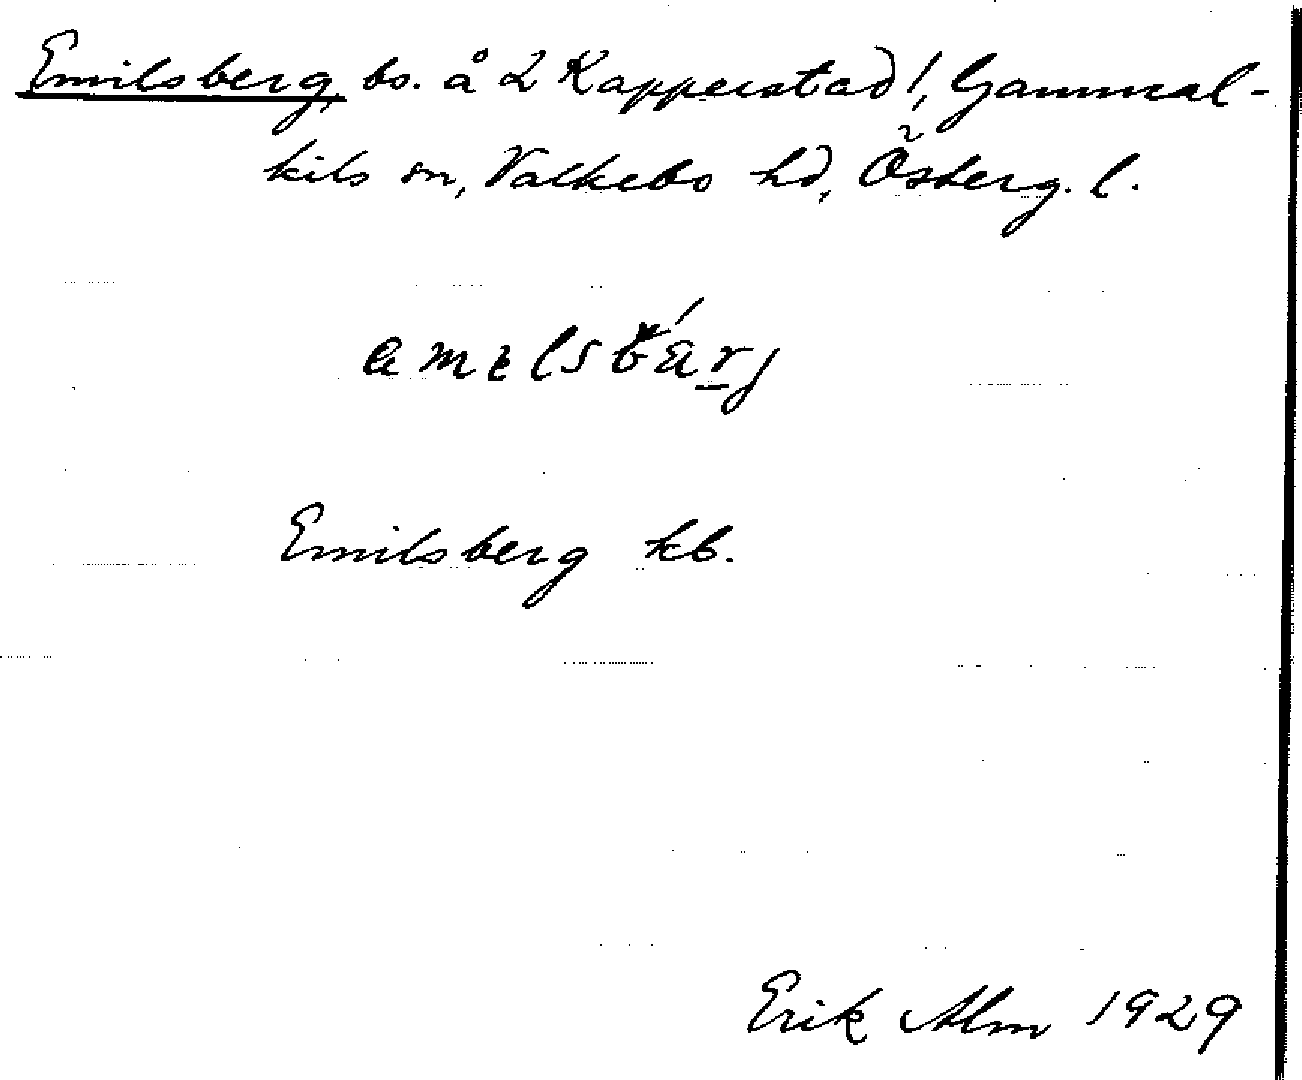 Emilsberg, bs. å 2 Kapperstad!, Gammal-
kils sn, Valkebo hd, Österg. l.
Emilsberg kb.
Erik Alm 1929